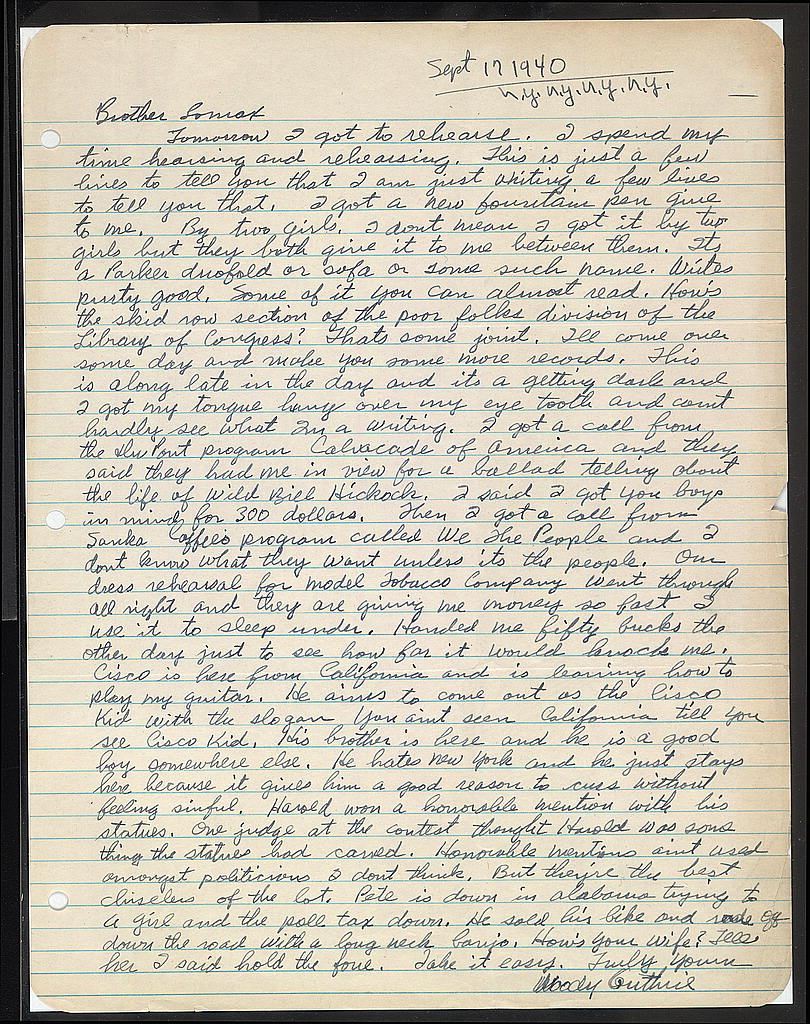 Sept 17 1940
n.y. n.y. n.y. n.y.
Brother Lomax
Tomorrow I got to rehearse. I spend my
time hearsing and rehearsing. This is just a few
lines to tell you that I am just writing a few lines
to tell you that. I got a new fountain pen give
to me. By two girls. I dont mean I got it by two
girls but they both give it to me between them. Its
a Parker duofold or sofa or some such name. Writes
purty good. Some of it you can almost read. How's
the skid row section of the poor folks division of the
Library of Congress? Thats some joint. Ill come over
some day and make you some more records. This
is along late in the day and its a getting dark and
I got my tongue hung over my eye tooth and cant
hardly see what Im a writing. I got a call from
the Du Pont program Calvacade of America and they
said they had me in view for a ballad telling about
the life of Wild Bill Hickock. I said I got you boys
in mind for 300 dollars. Then I got a call from
Sanka Coffee's program called We The People and I
dont know what they want unless its the people. Our
dress rehearsal for Model Tobacco Company went through
all right and they are giving me money so fast I
use it to sleep under. Handed me fifty bucks the
other day just to see how far it would knock me.
Cisco is here from California and is learning how to
play my guitar. He aims to come out as the Cisco
Kid with the slogan You aint seen California till you
see Cisco Kid. His brother is here and he is a good
boy somewhere else. He hates New York and he just stays
here because it gives him a good reason to cuss without
feeling sinful. Harold won a honorable mention with his
statues. One judge at the contest thought Harold was some
thing the statues had carved. Honorable mentions aint used
amongst politicians I dont think. But they're the best
chiselers of the lot. Pete is down in alabama trying to
a girl and the poll tax down. He sold his bike and rode off
down the road with a long neck banjo. How's your wife? Tell
her I said hold the fone. Take it easy. Truly yours
Woody Guthrie